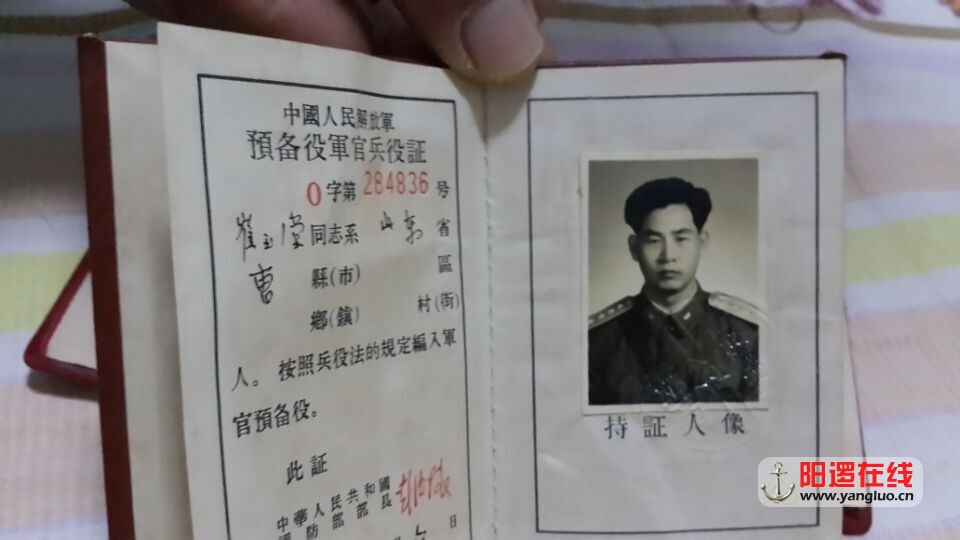 中國人民解放軍
預备役軍官兵役証
0字第284836号
崔玉堂同志系山东省
曹縣(市)區
鄉(鎮)村(街)
人。按照兵役法的規定編入軍
官預备役。
此証
中華人民共和國
國防部部長
日
持証人像
阳逻在线
www.yangluo.cn